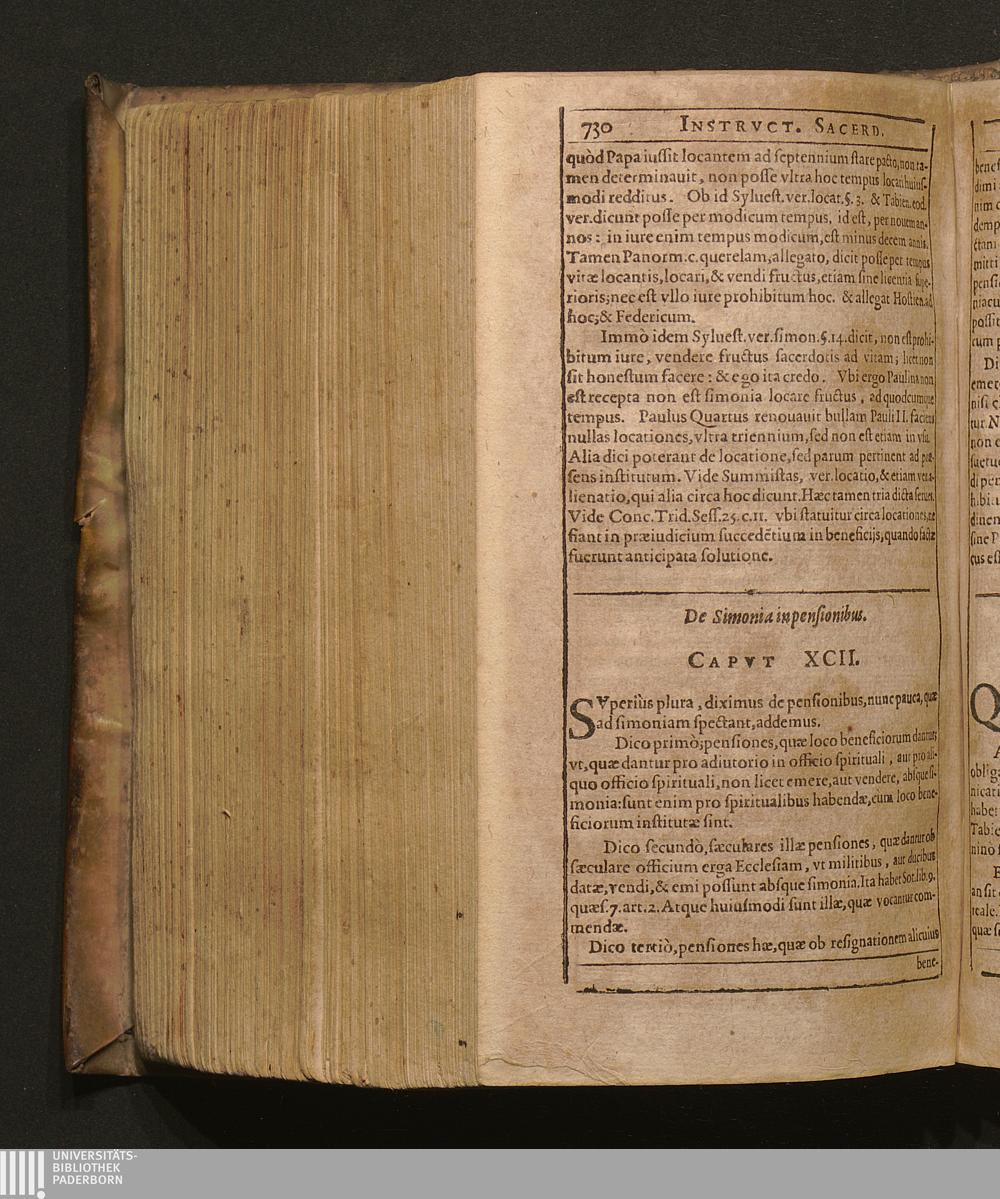 730 INSTRVCT. SACERD.
quòd Papa iussit locantem ad septennium stare pacto, non ta-
men determinauit, non posse vltra hoc tempus locari huius-
modi redditus. Ob id Syluest. ver. locat. §. 3. & Tabien. eod.
ver. dicunt posse per modicum tempus, id est, per nouem an-
nos: in iure enim tempus modicum, est minus decem annis.
Tamen Panorm. c. querelam, allegato, dicit posse per tempus
vitæ locantis, locari, & vendi fructus, etiam sine licentia supe-
rioris; nec est vllo iure prohibitum hoc. & allegat Hostien. ad
hoc; & Federicum.
Immò idem Syluest. ver. simon. §. 14. dicit, non est prohi-
bitum iure, vendere fructus sacerdotis ad vitam; licet non
sit honestum facere: & ego ita credo. Vbi ergo Paulina non
est recepta non est simonia locare fructus, ad quodcumque
tempus. Paulus Quartus renouauit bullam Pauli II. faciens
nullas locationes, vltra triennium, sed non est etiam in vsu.
Alia dici poterant de locatione, sed parum pertinent ad præ-
sens institutum. Vide Summistas, ver. locatio, & etiam ver. a-
lienatio, qui alia circa hoc dicunt. Hæc tamen tria dicta serues.
Vide Conc. Trid. Sess. 25. c. 11. vbi statuitur circa locationes, ne
fiant in præiudicium succedẽtium in beneficijs, quando factæ
fuerunt anticipata solutione.
De Simonia in pensionibus.
CAPVT XCII.
SVperiùs plura, diximus de pensionibus, nunc pauca, quæ
ad simoniam spectant, addemus.
Dico primò; pensiones, quæ loco beneficiorum dantur;
vt, quæ dantur pro adiutorio in officio spirituali, aut pro ali-
quo officio spirituali, non licet emere, aut vendere, absque si-
monia: sunt enim pro spiritualibus habendæ, cùm loco bene-
ficiorum institutæ sint.
Dico secundò, sæculares illæ pensiones, quæ dantur ob
sæculare officium erga Ecclesiam, vt militibus, aut ducibus
datæ, vendi, & emi possunt absque simonia. Ita habet Sot. lib. 9.
quæs. 7. art. 2. Atque huiusmodi sunt illæ, quæ vocantur com-
mendæ.
Dico tertiò, pensiones hæ, quæ ob resignationem alicuius
bene-
UNIVERSITÄTS-
BIBLIOTHEK
PADERBORN